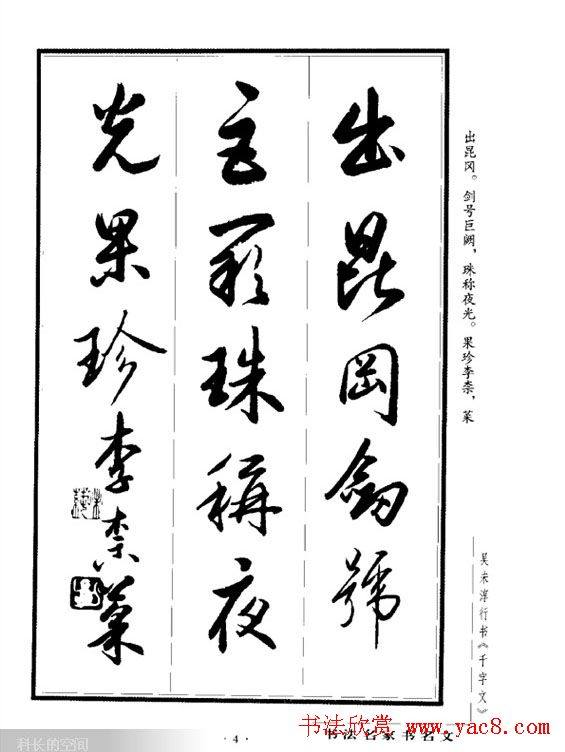 出昆岡劍號
巨闕珠稱夜
光果珍李柰菜
出昆冈。剑号巨阙，珠称夜光。果珍李柰，菜
吴未淳行书《千字文》
科长的空间
·4·
书法名家书名文
书法欣赏 www.yac8.com